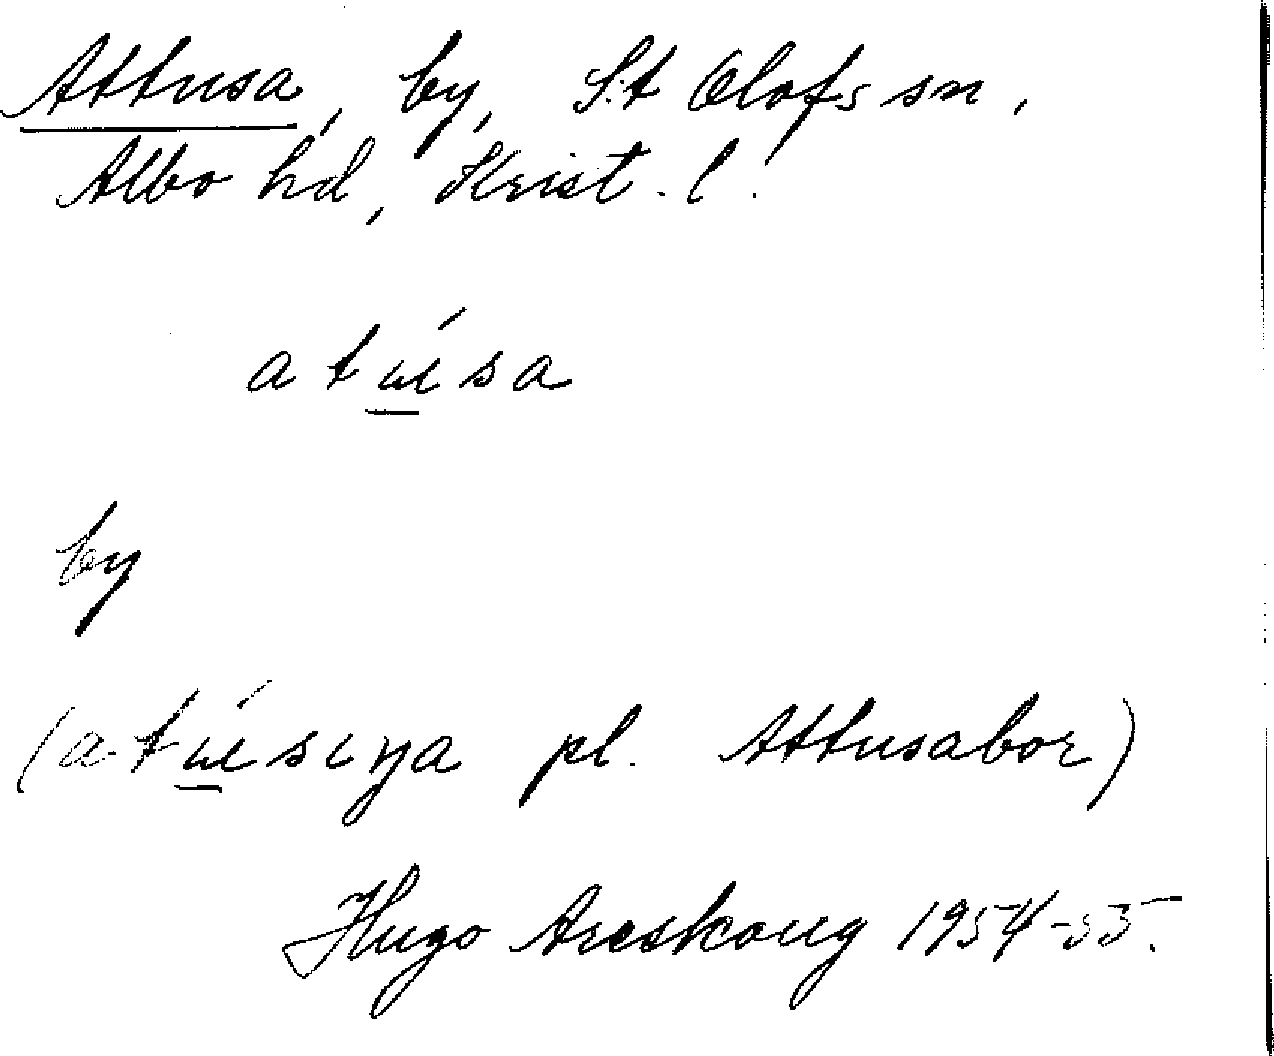 Attusa, by, S:t Olofs sn,
Albo hd, Krist. l.
atúsa
by
(atúsıŋa pl. Attusabor)
Hugo Areskoug 1954-55.